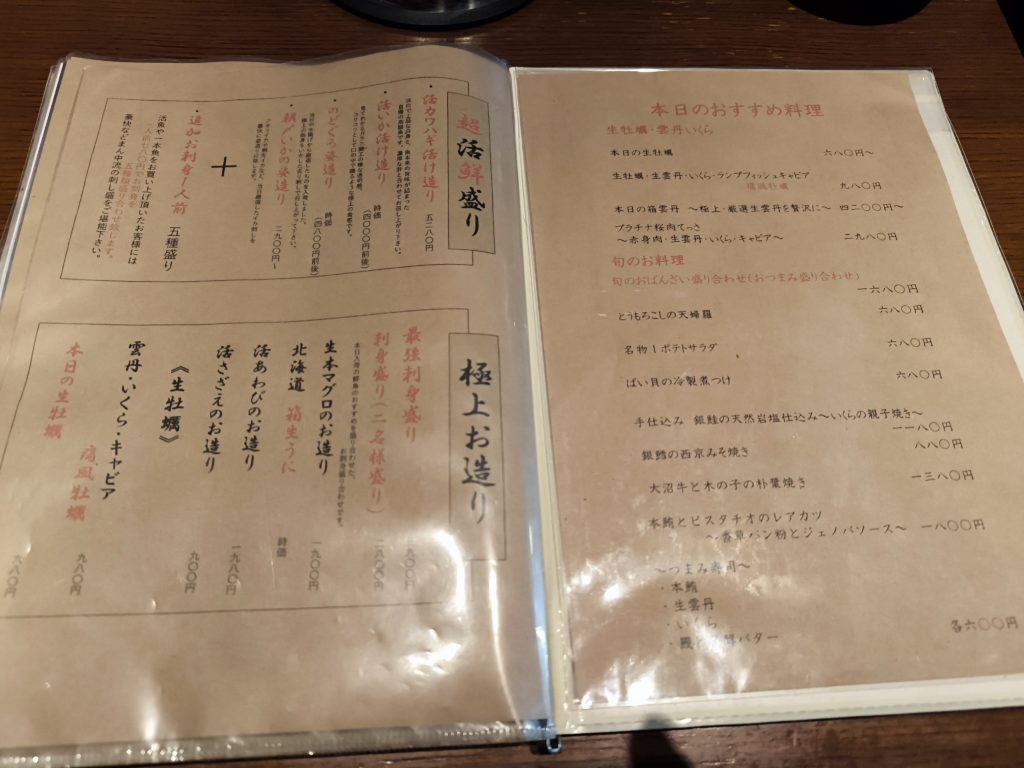 超活鮮盛り
・活カワハギ活け造り 五二八〇円
・活いか活け造り
時価(四〇〇〇円前後)
・のどぐろ姿造り
時価(四八〇〇円前後)
・朝〆いかの姿造り
二九〇〇円~
+
・追加お刺身1人前 五種盛り
活魚や一本魚をお買い上げ頂いたお客様には
一人前七八〇円でお刺身を
五種類盛り合わせ致します。
豪快などまん中流の刺し盛をご堪能下さい。
極上お造り
最強刺身盛り
刺身盛り(二名様盛り) 二八〇〇円
生本マグロのお造り 一九〇〇円
北海道 箱生うに 時価
活あわびのお造り 一九八〇円
活さざえのお造り 九八〇円
《生牡蠣》
雲丹・いくら・キャビア
痛風牡蠣 九八〇円
本日の生牡蠣 六八〇円
本日のおすすめ料理
生牡蠣・雲丹いくら
本日の生牡蠣 六八〇円~
生牡蠣・生雲丹・いくら・ランプフィッシュキャビア
痛風牡蠣 九八〇円
本日の箱雲丹 ~極上・厳選生雲丹を贅沢に~ 四二〇〇円~
プラチナ桜肉てっさ
~赤身肉・生雲丹・いくら・キャビア~ 二九八〇円
旬のお料理
旬のおばんざい盛り合わせ(おつまみ盛り合わせ)
一六八〇円
とうもろこしの天婦羅 六八〇円
名物!ポテトサラダ 六八〇円
ばい貝の冷製煮つけ 六八〇円
手仕込み 銀鮭の天然岩塩仕込み~いくらの親子焼き~
一一八〇円
銀鱈の西京みそ焼き 八八〇円
大沼牛と木の子の朴葉焼き 一三八〇円
本鮪とピスタチオのレアカツ
~香草パン粉とジェノバソース~ 一八〇〇円
~つまみ寿司~
・本鮪
・生雲丹
・いくら
バター
各六〇〇円